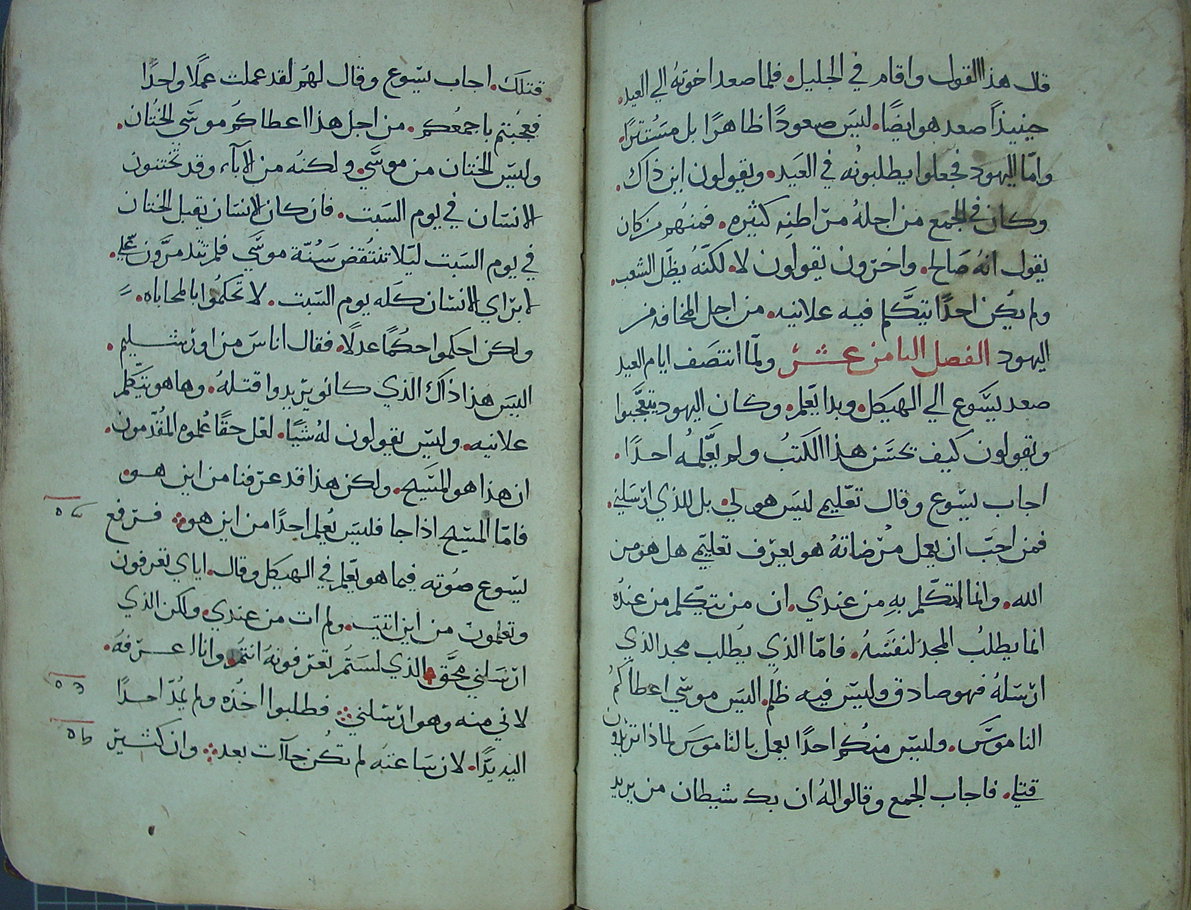 قال هذا القول واقام في الجليل. فلما صعد اخوته الي العيد.
حينيذٍ صعد هو ايضًا. ليس صعودًا ظاهرًا بل مستترًا.
وامّا اليهود فجعلوا يطلبونه في العيد. ويقولون اين ذاك.
وكان في الجمع من اجله مراطنه كثيره. فمنهم من كان
يقول انه صالح. واخرون يقولون لا. لكنه يظل الشعب.
ولم يكن احدًا يتكلم فيه علانيه. من اجل المخافه من
اليهود الفصل الثامن عشر ولما انتصف ايام العيد
صعد يسوع الي الهيكل. وبدا يعلم. وكان اليهود يتعجبوا
ويقولون كيف يحسن هذا الكتب ولم يعلمه احدًا.
اجاب يسوع وقال تعليمي ليس هو لي. بل للذي ارسلني.
فمن احب ان يعمل مرضاته هو يعرف تعليمي هل هو من
الله. وانما اتكلم به من عندي. ان من يتكلم من عنده
انما يطلب المجد لنفسه. فامّا الذي يطلب مجد الذي
ارسله فهو صادق وليس فيه ظلم. اليس موسي اعطاكم
الناموس. وليس منكم احدًا يعمل بالناموس لماذا تريدون
قتلي. فاجاب الجمع وقالوا له ان بك شيطان من يريد
قتلك. اجاب يسوع وقال لهم لقد عملت عملًا واحدًا
فعجبتم باجمعكم. من اجل هذا اعطاكم موسي الختان.
وليس الختان من موسي. ولكنه من الآباء وقد تختنون
الانسان في يوم السبت. فان كان الانسان يقبل الختان
في يوم السبت ليلا تنتقض سنة موسي فلم تتدمرون علي.
لابراي الانسان كله يوم السبت. لا تحكموا بالمحاباه.
ولكن احكموا حكمًا عدلًا. فقال اناس من اورشليم.
اليس هذا ذاك الذي كانو يريدوا قتله. وها هو يتكلم
علانيه. وليس يقولون له شيًا. لعل حقًا علموه المقدمون.
ان هذا هو المسيح. ولكن هذا قد عرفنا من اين هو.
فامّا المسيح اذا جا فليس يعلم احدًا من اين هو. فرفع
يسوع صوته فيما هو يعلم في الهيكل وقال. اياي تعرفون
وتعلمون من اين اتيت. ولم ات من عندي. ولكن الذي
ارسلني محق الذي لستم تعرفونه انتم. وانا اعرفه.
لاني منه وهو ارسلني. فطلبوا اخذه ولم يمدّ احدًا
اليه يدًا. لان ساعته لم تكن جآت بعد. وان كثير